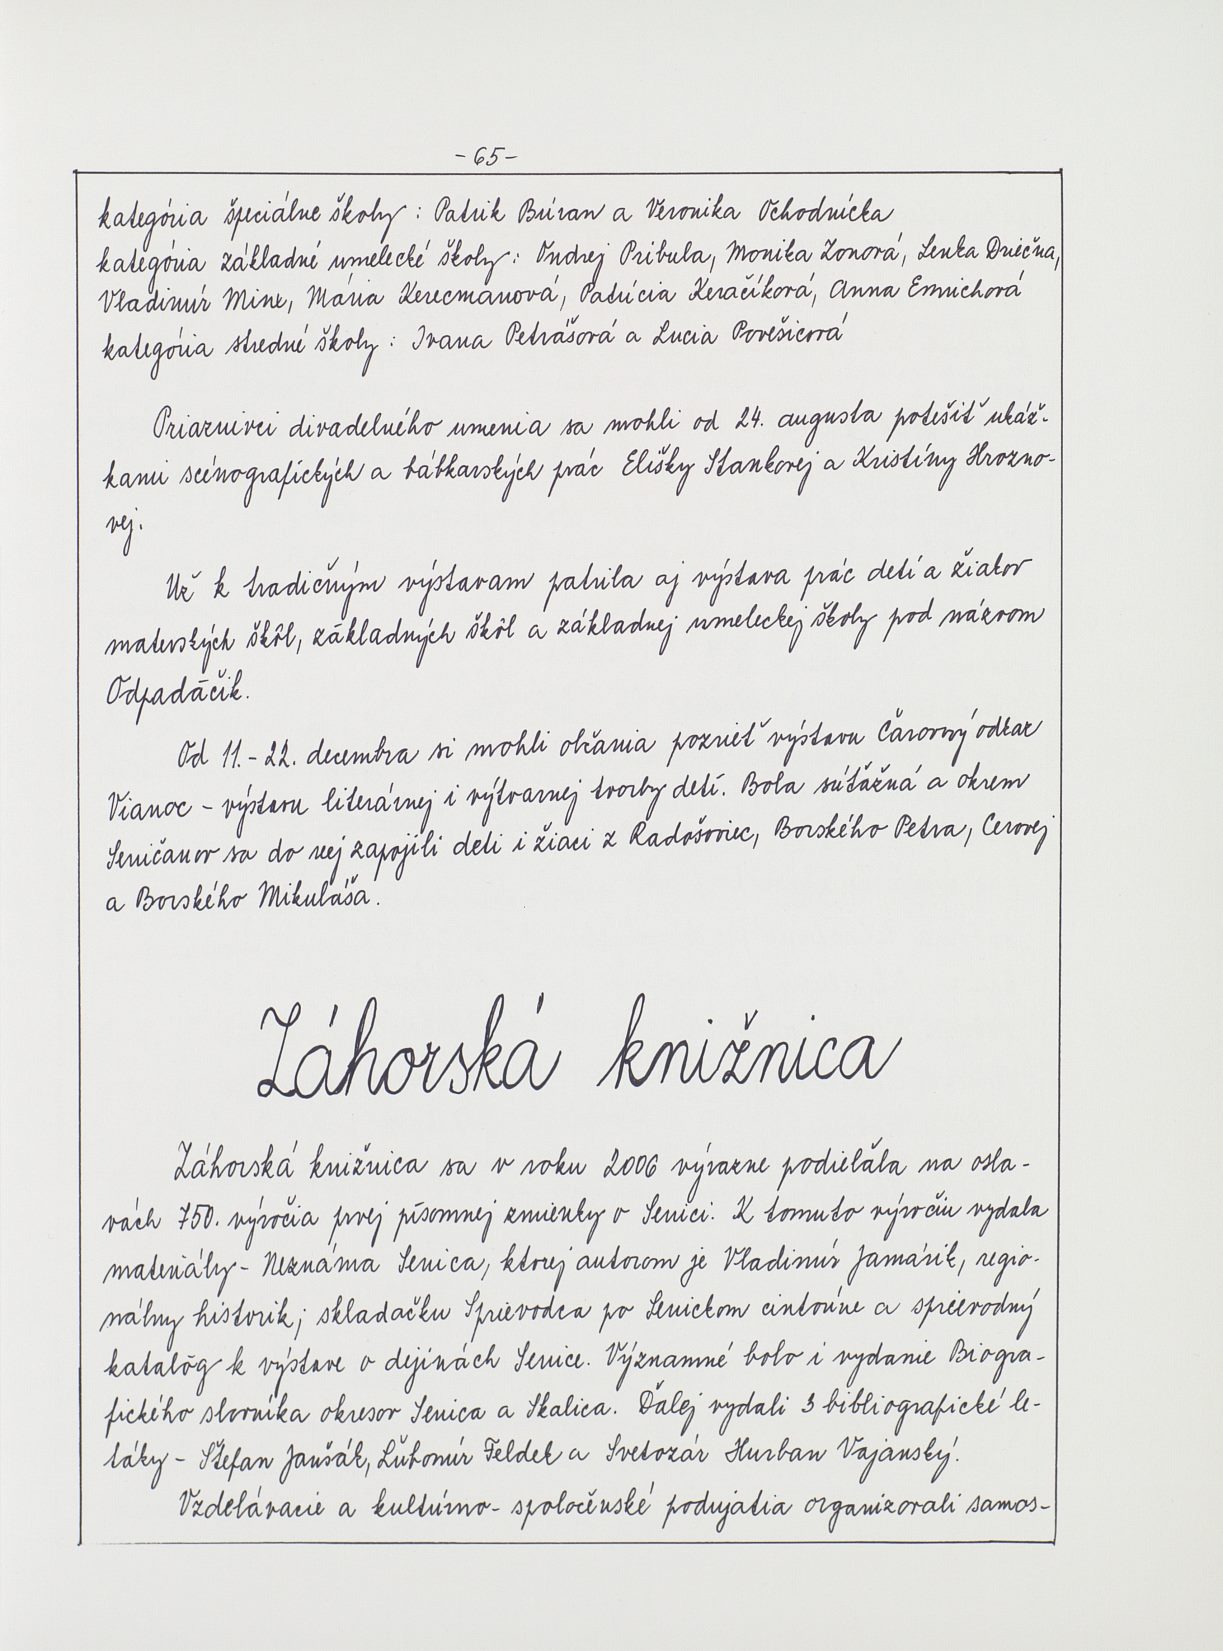 - 65 -
kategória špeciálne školy : Patrik Búran a Veronika Ochodnícka
kategória základné umelecké školy : Ondrej Pribula, Monika Zonová, Lenka
Vladimír Minx, Mária Kerecmanová, Patrícia Keračíková, Anna Emrichová
kategória stredné školy : Ivana Petrášová a Lucia Povešicová
Priaznivci divadelného umenia sa mohli od 24. augusta potešiť ukáž-
kami scénografických a bábkarských prác Elišky Stankovej a Kristíny Hrozno-
vej.
Už k tradičným výstavam patrila aj výstava prác detí a žiakov
materských škôl, základných škôl a základnej umeleckej školy pod názvom
Odpadáčik.
Od 11. - 22. decembra si mohli občania pozrieť výstavu Čarovný odkaz
Vianoc - výstavu literárnej i výtvarnej tvorby detí. Bola súťažná a okrem
Seničanov sa do nej zapojili deti i žiaci z Radošoviec, Borského Petra, Cerovej
a Borského Mikuláša.
Záhorská knižnica
Záhorská knižnica sa v roku 2006 výrazne podieľala na osla-
vách 750. výročia prvej písomnej zmienky o Senici. K tomuto výročiu vydala
materiály - Neznáma Senica, ktorej autorom je Vladimír Jamárik, regio-
nálny historik; skladačku Sprievodca po Senickom cintoríne a sprievodný
katalóg k výstave o dejinách Senice. Významné bolo i vydanie Biogra-
fického slovníka okresov Senica a Skalica. Ďalej vydali 3 bibliografické le-
táky - Štefan Janšák, Ľubomír Feldek a Svetozár Hurban Vajanský.
Vzdelávacie a kultúrno - spoločenské podujatia organizovali samos-